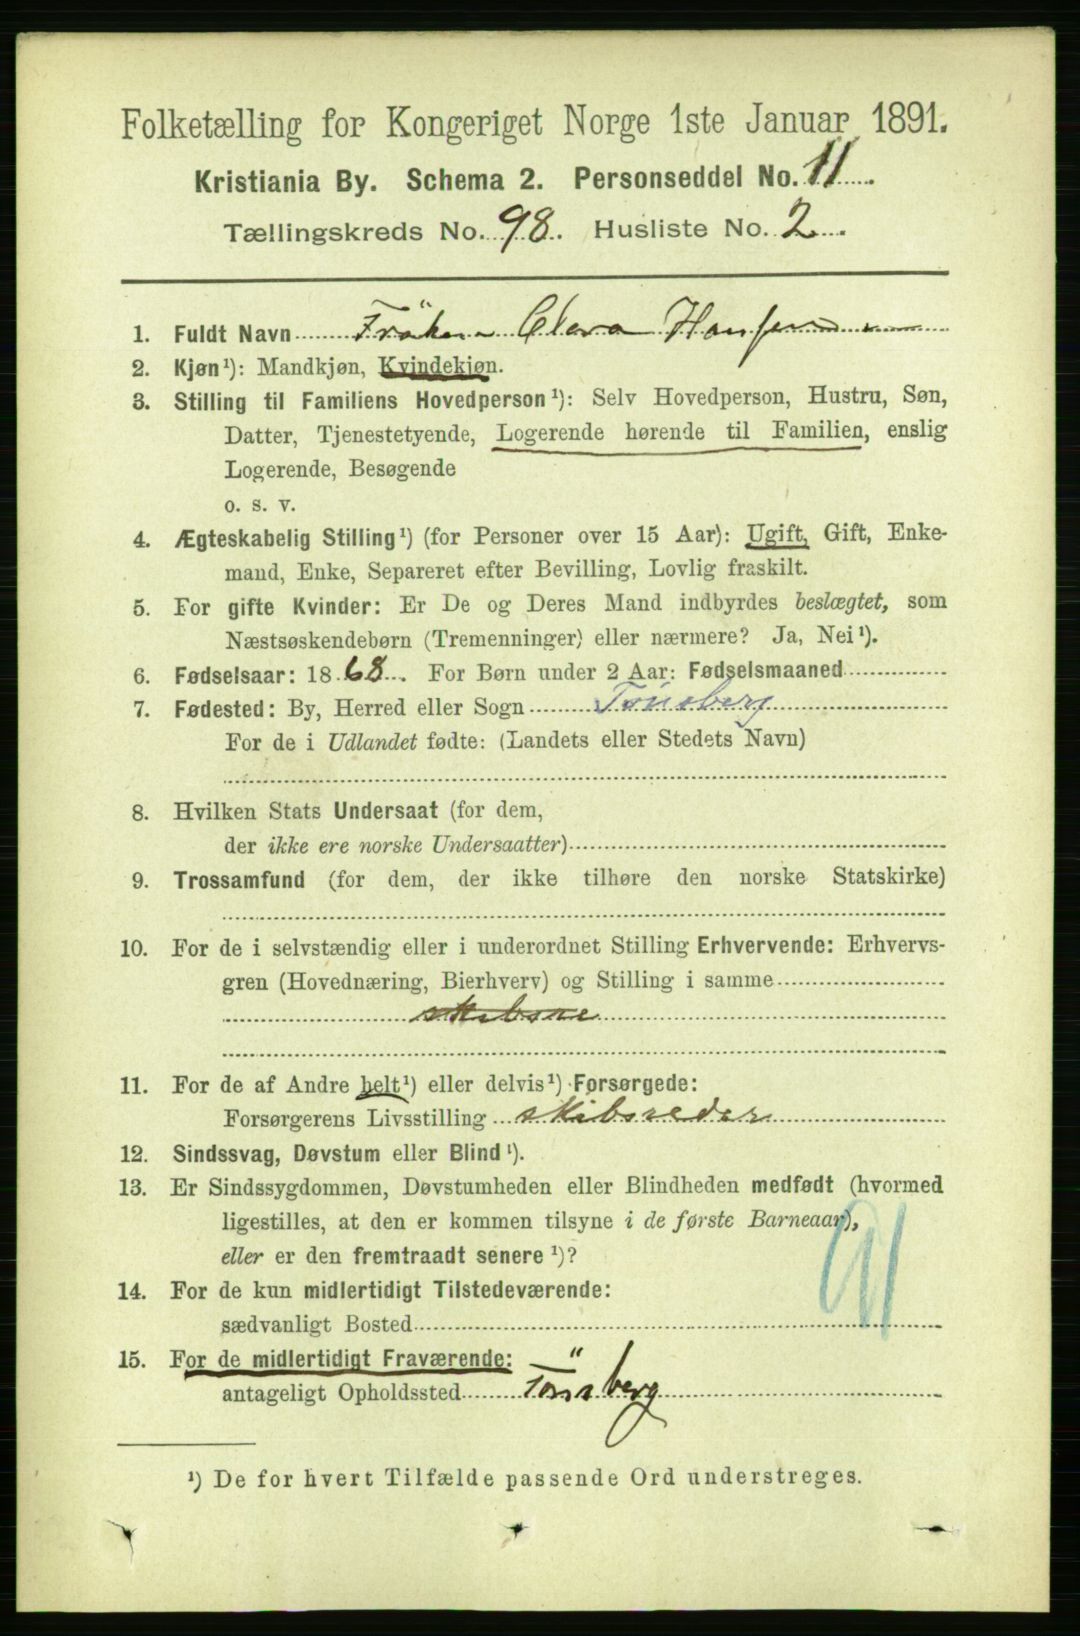 Folketælling for Kongeriget Norge 1ste Januar 1891.
Kristiania By. Schema 2. Personseddel No. 11.
Tællingskreds No. 98. Husliste No. 2.
1. Fuldt Navn Fröken Clara Hansen
2. Kjøn¹): Mandkjøn, Kvindekjøn.
3. Stilling til Familiens Hovedperson¹): Selv Hovedperson, Hustru, Søn,
Datter, Tjenestetyende, Logerende hørende til Familien, enslig
Logerende, Besøgende
o. s. v.
4. Ægteskabelig Stilling¹) (for Personer over 15 Aar): Ugift, Gift, Enke-
mand, Enke, Separeret efter Bevilling, Lovlig fraskilt.
5. For gifte Kvinder: Er De og Deres Mand indbyrdes beslægtet, som
Næstsøskendebørn (Tremenninger) eller nærmere? Ja, Nei¹).
6. Fødselsaar: 1868. For Børn under 2 Aar: Fødselsmaaned
7. Fødested: By, Herred eller Sogn Tönsberg
For de i Udlandet fødte: (Landets eller Stedets Navn)
8. Hvilken Stats Undersaat (for dem,
der ikke ere norske Undersaatter)
9. Trossamfund (for dem, der ikke tilhøre den norske Statskirke)
10. For de i selvstændig eller i underordnet Stilling Erhvervende: Erhvervs-
gren (Hovednæring, Bierhverv) og Stilling i samme
skibsre
11. For de af Andre helt¹) eller delvis¹) Forsørgede:
Forsørgerens Livsstilling skibsreder
12. Sindssvag, Døvstum eller Blind¹).
13. Er Sindssygdommen, Døvstumheden eller Blindheden medfødt (hvormed
ligestilles, at den er kommen tilsyne i de første Barneaar),
eller er den fremtraadt senere¹)?
14. For de kun midlertidigt Tilstedeværende:
sædvanligt Bosted
15. For de midlertidigt Fraværende:
antageligt Opholdssted Tönsberg
¹) De for hvert Tilfælde passende Ord understreges.